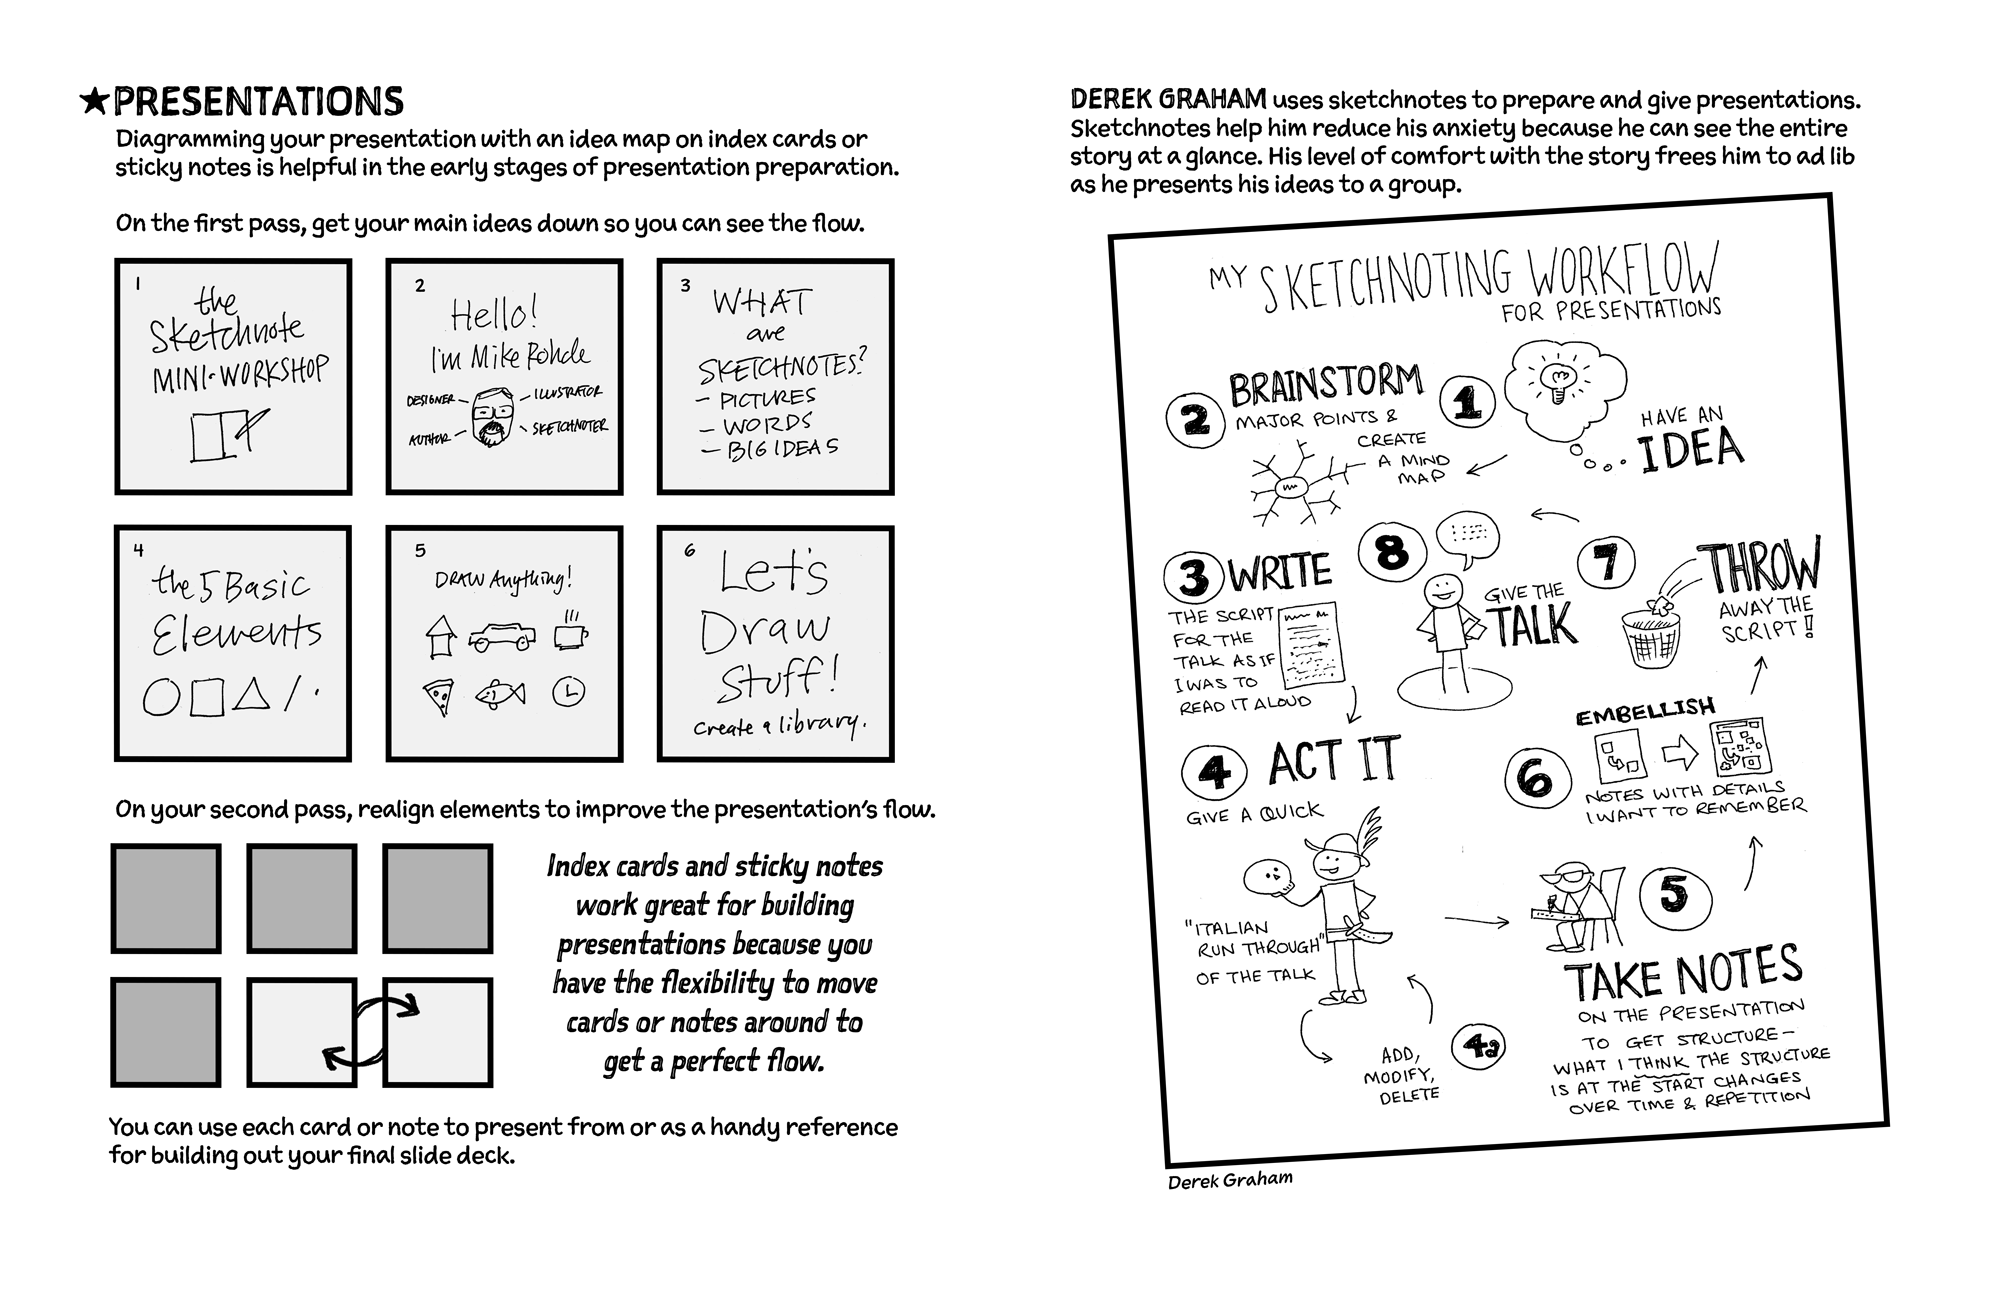 ★PRESENTATIONS
Diagramming your presentation with an idea map on index cards or
sticky notes is helpful in the early stages of presentation preparation.
On the first pass, get your main ideas down so you can see the flow.
1
the
Sketchnote
MINI-WORKSHOP
2
Hello!
I'm Mike Rohde
DESIGNER
ILLUSTRATOR
AUTHOR
SKETCHNOTER
3
WHAT
are
SKETCHNOTES?
- PICTURES
- WORDS
- BIG IDEAS
4
the 5 Basic
Elements
5
DRAW Anything!
6
Let's
Draw
Stuff!
Create a library.
On your second pass, realign elements to improve the presentation's flow.
Index cards and sticky notes
work great for building
presentations because you
have the flexibility to move
cards or notes around to
get a perfect flow.
You can use each card or note to present from or as a handy reference
for building out your final slide deck.
DEREK GRAHAM uses sketchnotes to prepare and give presentations.
Sketchnotes help him reduce his anxiety because he can see the entire
story at a glance. His level of comfort with the story frees him to ad lib
as he presents his ideas to a group.
MY SKETCHNOTING WORKFLOW
FOR PRESENTATIONS
1
HAVE AN
IDEA
2 BRAINSTORM
MAJOR POINTS &
CREATE
A MIND
MAP
3 WRITE
THE SCRIPT
FOR THE
TALK AS IF
I WAS TO
READ IT ALOUD
4 ACT IT
GIVE A QUICK
"ITALIAN
RUN THROUGH"
OF THE TALK
4a
ADD,
MODIFY,
DELETE
5
TAKE NOTES
ON THE PRESENTATION
TO GET STRUCTURE—
WHAT I THINK THE STRUCTURE
IS AT THE START CHANGES
OVER TIME & REPETITION
6
EMBELLISH
NOTES WITH DETAILS
I WANT TO REMEMBER
7 THROW
AWAY THE
SCRIPT!
8
GIVE THE
TALK
Derek Graham